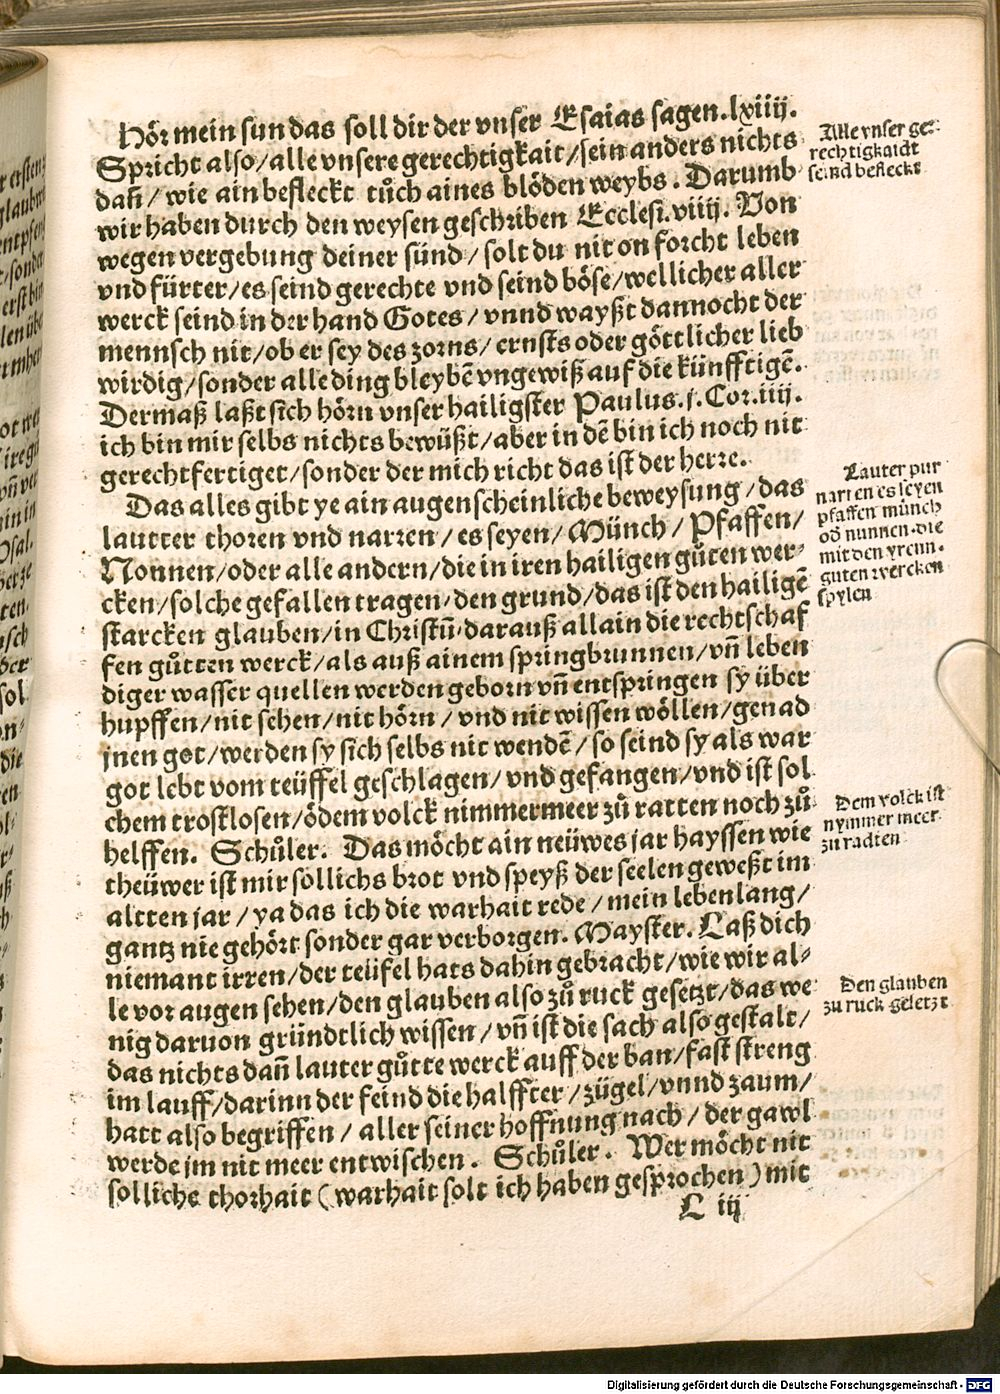 Hör mein sun das soll dir der vnser Esaias sagen. lxiiij.
Spricht also/alle vnsere gerechtigkait/sein anders nichts
dañ/ wie ain befleckt tůch aines blöden weybs. Darumb
wir haben durch den weysen geschriben Ecclesi. viiij. Von
wegen vergebung deiner sünd/ solt du nit on forcht leben
vnd fürter/es seind gerechte vnd seind böse/wellicher aller
werck seind in der hand Gotes/ vnnd wayßt dannocht der
mennsch nit/ob er sey des zorns/ ernsts oder göttlicher lieb
wirdig/sonder alle ding bleybē vngewiß auf die künfftigē.
Dermaß laßt sich hörn vnser hailigster Paulus. j. Cor. iiij.
ich bin mir selbs nichts bewüßt/aber in dē bin ich noch nit
gerechtfertiget/sonder der mich richt das ist der herre.
Das alles gibt ye ain augenscheinliche beweysung/das
lautter thoren vnd narren/es seyen/ Münch/ Pfaffen/
Nonnen/oder alle andern/die in iren hailigen gůten wer-
cken/solche gefallen tragen. den grund/das ist den hailigē
starcken glauben/in Christū. darauß allain die rechtschaf
fen gůtten werck/als auß ainem springbrunnen/vñ leben
diger wasser quellen werden geborn vñ entspringen sy über
hupffen/nit sehen/nit hörn/ vnd nit wissen wöllen/genad
jnen got/werden sy sich selbs nit wendē/so seind sy als war
got lebt vom teüffel geschlagen/vnd gefangen/vnd ist sol
chem trostlosen/ödem volck nimmermeer zů ratten noch zů
helffen. Schůler. Das möcht ain neüwes jar hayssen wie
theüwer ist mir söllichs brot vnd speyß der seelen geweßt im
altten jar/ ya das ich die warhait rede/ mein lebenlang/
gantz nie gehört sonder gar verborgen. Mayster. Laß dich
niemant irren/der teüfel hats dahin gebracht/wie wir al-
le vor augen sehen/den glauben also zů ruck gesetzt/das we
nig daruon gründtlich wissen/ vñ ist die sach also gestalt/
das nichts dañ lauter gůtte werck auff der ban/fast streng
im lauff/darinn der feind die halffter/ zügel/vnnd zaum/
hatt also begriffen/ aller seiner hoffnung nach/ der gawl
werde jm nit meer entwischen. Schůler. Wer möcht nit
solliche thorhait (warhait solt ich haben gesprochen) mit
L iij
Alle vnser ge-
rechtigkaidt
seind befleckt
Lauter pur
narren es seyen
pfaffen münch
od nunnen. die
mit den yrenn.
guten wercken
spylen
Dem volck ist
nymmer meer
zu radten
Den glauben
zu ruck geletzt
Digitalisierung gefördert durch die Deutsche Forschungsgemeinschaft - DFG